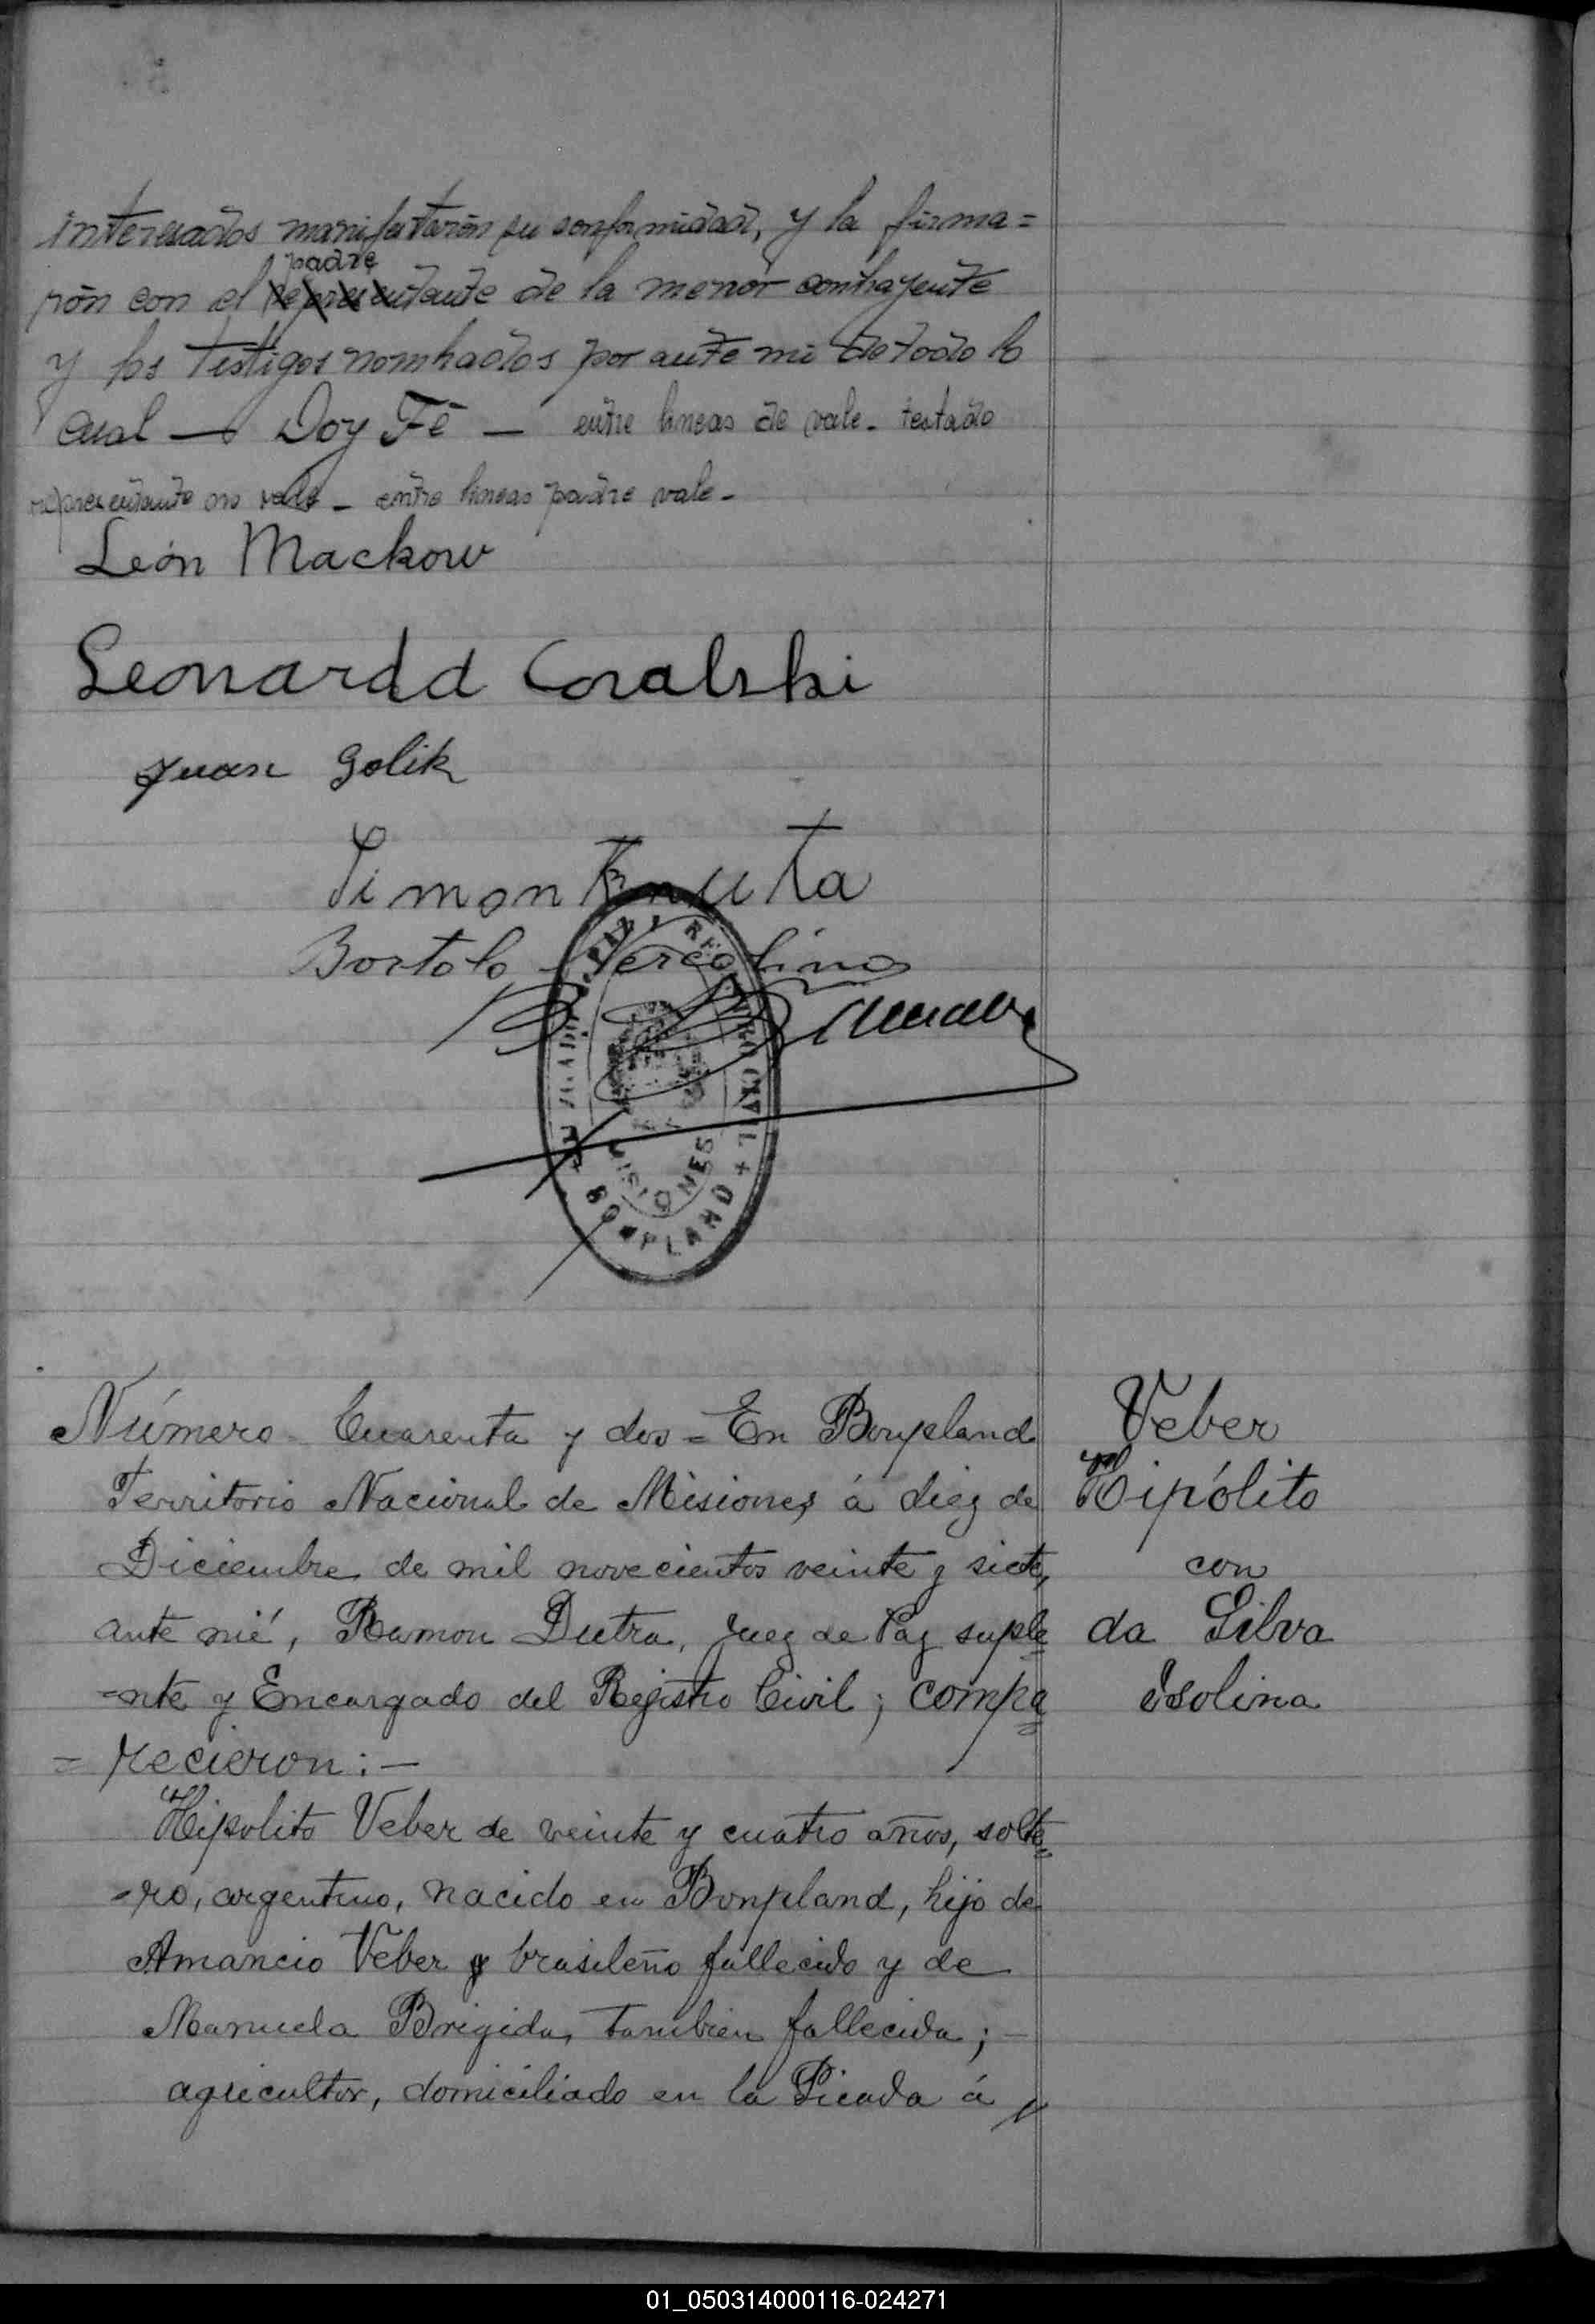 interesados manifestarón su conformidad, y la firma=
padre
rón con el representante de la menor contrayente
y los testigos nombrados por ante mi de todo lo
cual — Doy Fé — entre lineas de vale - testado
representante no vale - entre lineas padre vale -
León Mackow
Leonarda Coralski
Juan Golik
Simon Knuta
Bortolo
JUZGADO DE PAZ Y REGISTRO CIVIL
MISIONES
+ BONPLAND +
Número Cuarenta y dos = En Bonpland
Territorio Nacional de Misiones á diez de
Diciembre de mil novecientos veinte y siete,
ante mí, Ramon Dutra, Juez de Paz suple
=nte y Encargado del Registro Civil; compa
=recieron: —
Hipolito Veber de veinte y cuatro años, solte=
=ro, argentino, nacido en Bonpland, hijo de
Amancio Veber brasileño fallecido y de
Manuela Brigida, tambien fallecida; —
agricultor, domiciliado en la Picada á
Veber
Hipólito
con
da Silva
Isolina
01_050314000116-024271